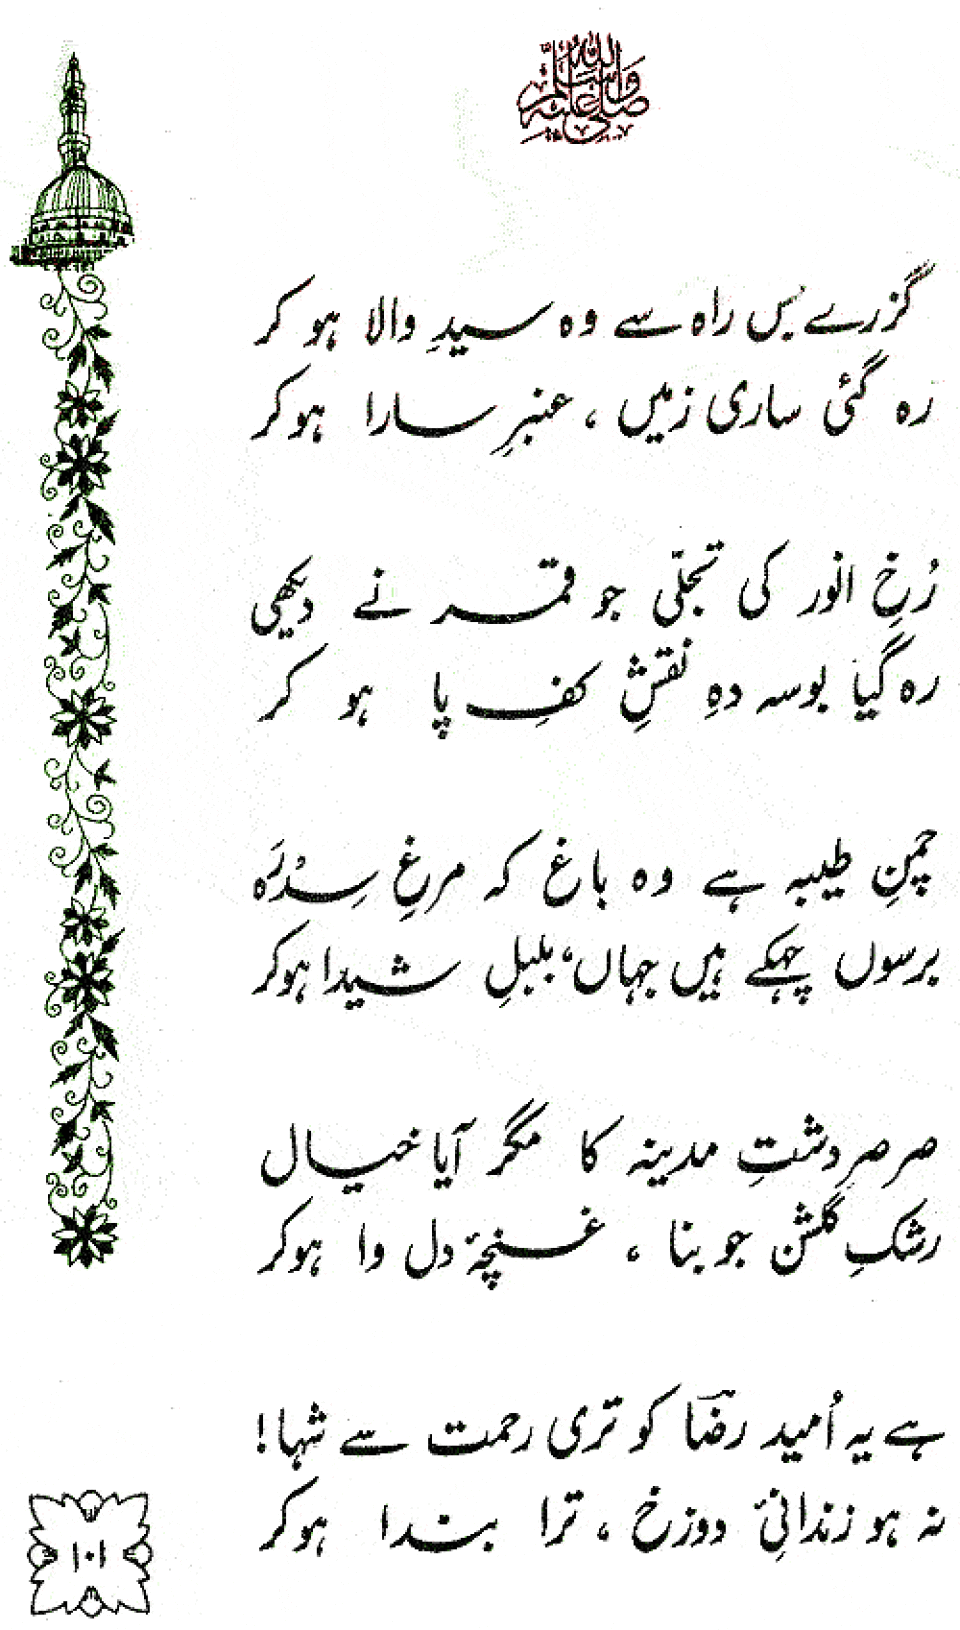 صلی اللہ علیہ وسلم
گزرے بس راہ سے وہ سیدِ والا ہو کر
رہ گئی ساری زمیں ، عنبرِ سارا ہوکر
رُخِ انور کی تجلّی جو قمر نے دیکھی
رہ گیا بوسہ دہِ نقشِ کفِ پا ہو کر
چمنِ طیبہ ہے وہ باغ کہ مرغِ سِدْرَہ
برسوں چہکے ہیں جہاں، بلبلِ شیدا ہوکر
صرصرِ دشتِ مدینہ کا مگر آیا خیال
رشکِ گلشن جو بنا ، غنچۂ دل وا ہوکر
ہے یہ اُمید رضاؔ کو تری رحمت سے شہا!
نہ ہو زندانیِٔ دوزخ ، ترا بندا ہوکر
۱۰۱